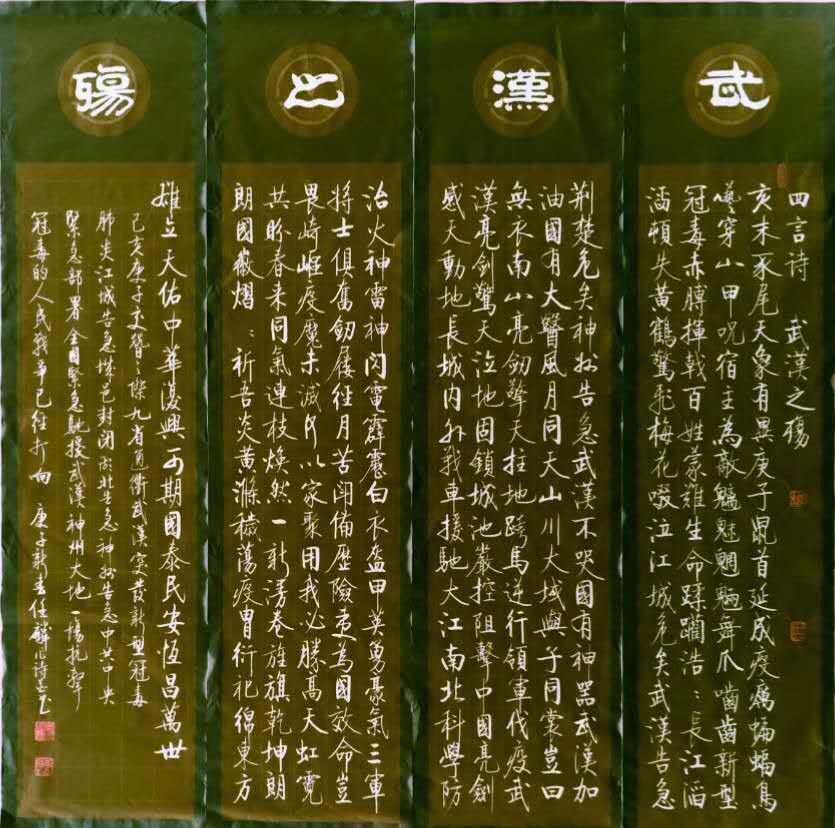 武
漢
之
殤
四言诗 武漢之殤
亥末豕尾天象有異庚子鼠首延成疫癘蝙蝠鳥
喙穿山甲呪宿主為敵魑魅魍魎舞爪嚙齒新型
冠毒赤膊揮戟百姓蒙難生命蹂躪浩:長江滔
滔頓失黃鶴驚飛梅花啜泣江城危矣武漢告急
荊楚危矣神州告急武漢不哭國有神器武漢加
油國有大醫風月同天山川大域與子同裳豈曰
無衣南山亮劒擎天拄地跨馬逆行領軍伐疫武
漢亮劍驚天泣地固鎖城池嚴控阻擊中國亮劍
感天動地長城內外戰車援馳大江南北科學防
治火神雷神閃電霹靂白衣盔甲英勇豪氣三軍
將士俱奮劒屢往月苦閉備歷險夷為國效命豈
畏崎嶇疫魔未滅何以家聚用我必勝高天虹霓
共盼春来同氣連枝煥然一新漫卷旌旗乾坤朗
朗國徽熠:祈吾炎黃滌穢蕩疫胄衍祀綿東方
雄立天佑中華復興可期國泰民安恆昌萬世
己亥庚子交替之際九省通衢武漢突發新型冠毒
肺炎江城告急城邑封閉湖北告急神州告急中共中央
緊急部署全國緊急馳援武漢神州大地一場抗擊
冠毒的人民戰爭已经打响 庚子新春任麟旧诗